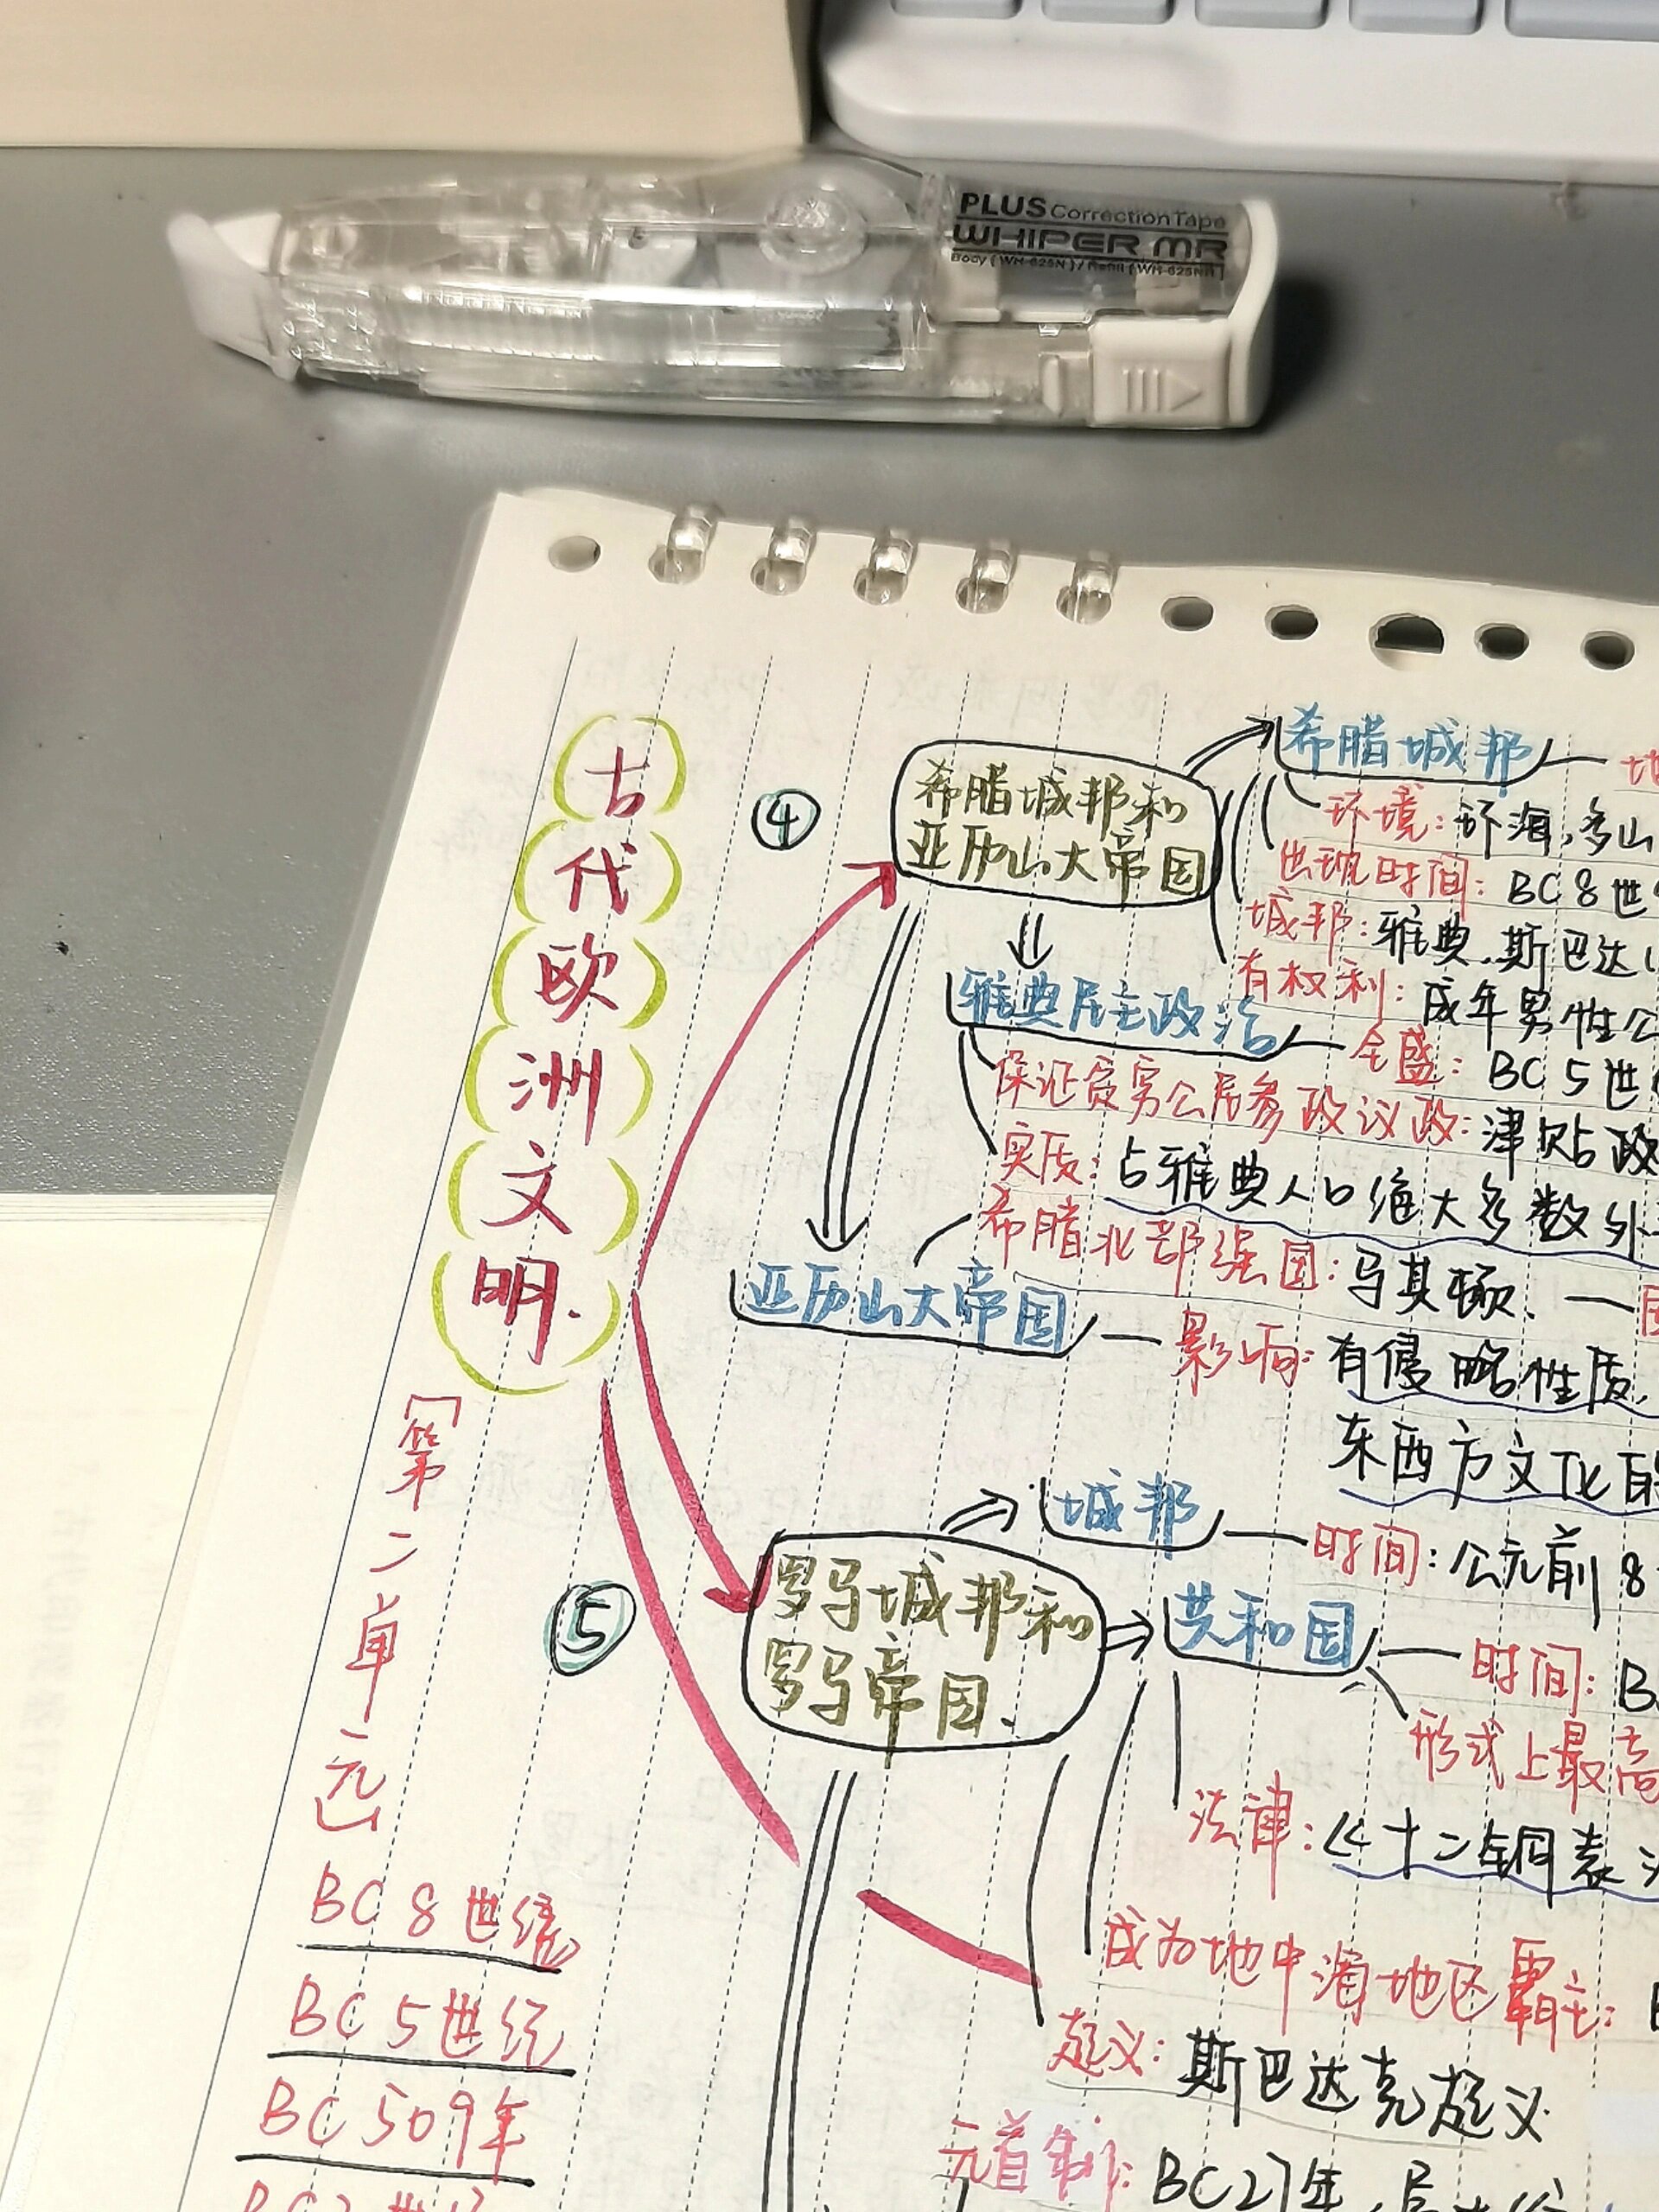 PLUS Correction Tape
WHIPER MR
Body (WH-625N) / Refill (WH-625NR)
古代欧洲文明.
[第二单元]
BC 8世纪
BC 5世纪
BC 509年
④
希腊城邦和
亚历山大帝国
希腊城邦
环境:环海,多山
出现时间:BC 8世
城邦:雅典、斯巴达
有权利:成年男性公
雅典民主政治
全盛:BC 5世
保证贫穷公民参政议政:津贴政
实质:占雅典人口绝大多数外
希腊北部强国:马其顿.
亚历山大帝国
影响:有侵略性质,
东西方文化的
⑤
罗马城邦和
罗马帝国.
城邦
时间:公元前8
共和国
时间:B
形式上最高
法律:《十二铜表
成为地中海地区霸主:
起义:斯巴达克起义
元首制:BC27年,屋